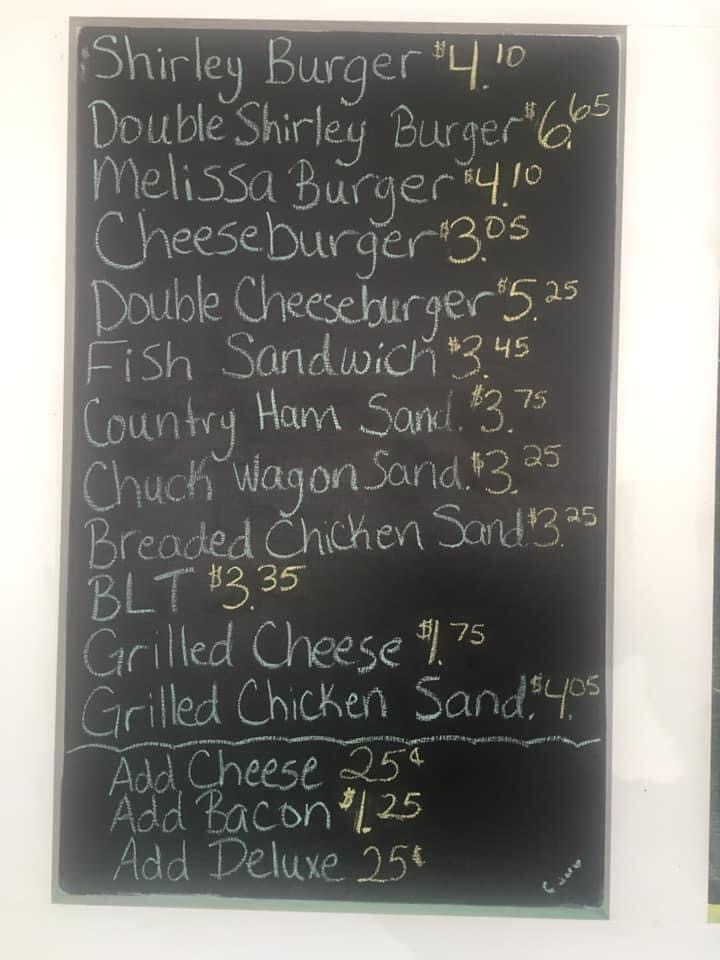 Shirley Burger $4.10
Double Shirley Burger $6.65
Melissa Burger $4.10
Cheeseburger $3.05
Double Cheeseburger $5.25
Fish Sandwich $3.45
Country Ham Sand. $3.75
Chuck Wagon Sand. $3.25
Breaded Chicken Sand. $3.25
BLT $3.35
Grilled Cheese $1.75
Grilled Chicken Sand. $4.05
Add Cheese 25¢
Add Bacon $1.25
Add Deluxe 25¢